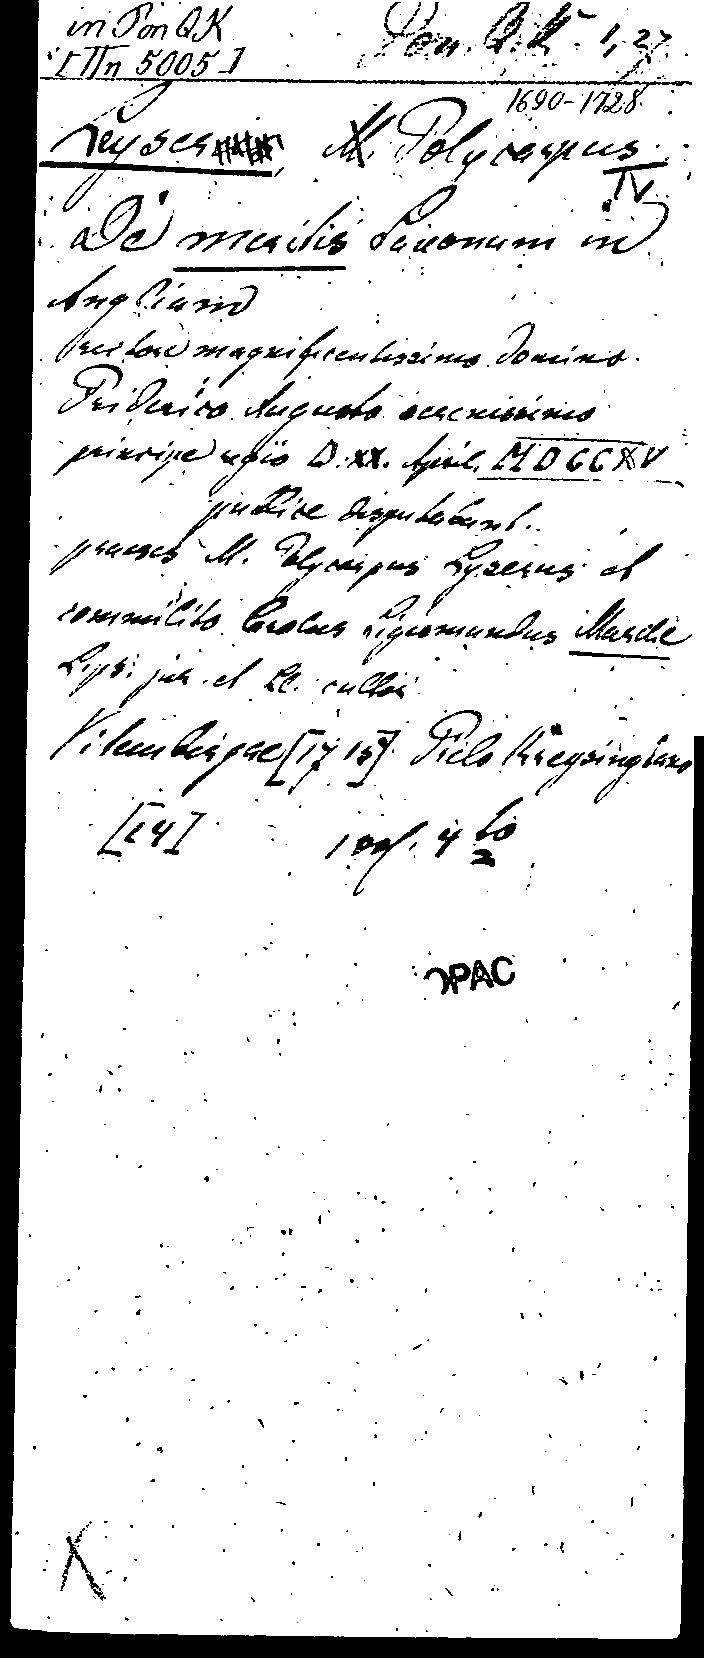 in Pon QK
[IIn 5005]
Pon. QK 1,27
1690-1728
Leyser, M. Polycarpus
IV
De meritis Saxonum in
Angliam
rectore magnificentissimo domino
Friderico Augusto serenissimo
principe regio D. XX. April. MDCCXV
publice disputabunt
praeses M. Polycarpus Lyserus et
commilito Carolus Sigismundus
Lips. jur. et cultor
Vitembergae [1715]
[24] 4to
OPAC
X